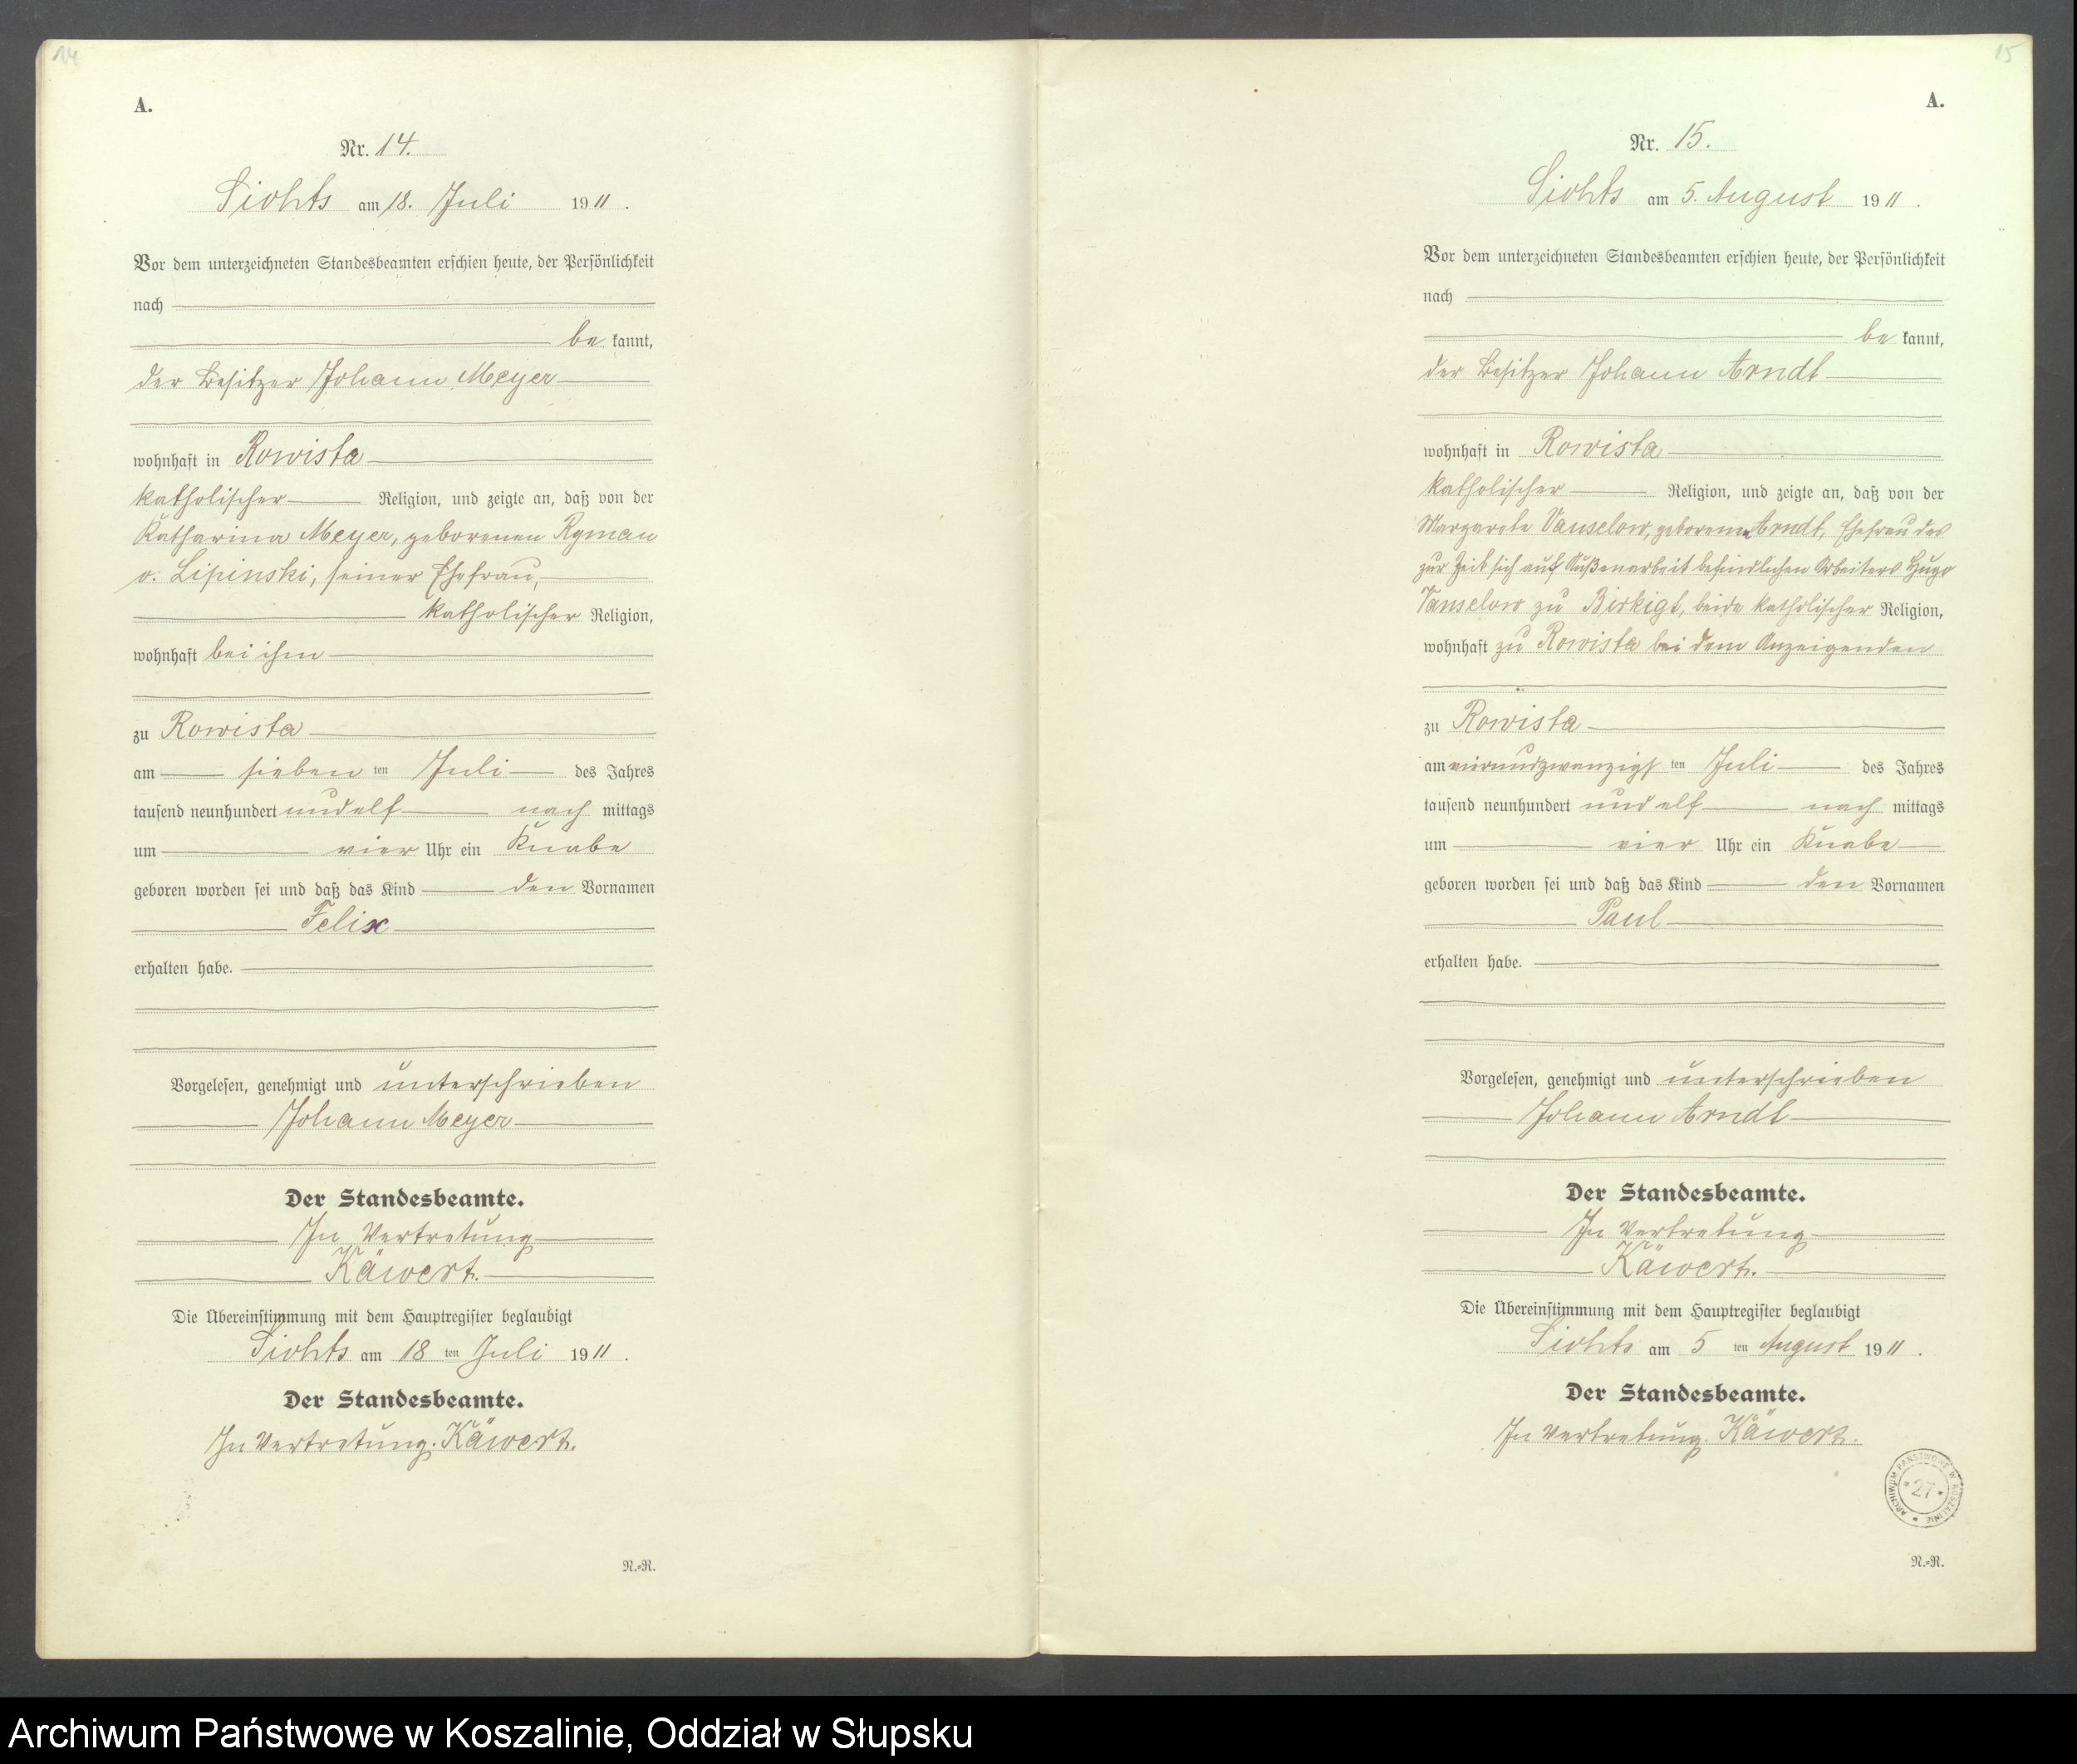 14
A.
Nr. 14.
Siohts am 18. Juli 1911.
Vor dem unterzeichneten Standesbeamten erschien heute, der Persönlichkeit
nach
be kannt,
der Besitzer Johann Meyer
wohnhaft in Rowista
katholischer Religion, und zeigte an, daß von der
Katharina Meyer, geborenen Ryman
v. Lipinski, seiner Ehefrau,
katholischer Religion,
wohnhaft bei ihm
zu Rowista
am sieben ten Juli des Jahres
tausend neunhundert und elf nach mittags
um vier Uhr ein Knabe
geboren worden sei und daß das Kind den Vornamen
Felix
erhalten habe.
Vorgelesen, genehmigt und unterschrieben
Johann Meyer
Der Standesbeamte.
In Vertretung
Käwert.
Die Übereinstimmung mit dem Hauptregister beglaubigt
Siohts am 18 ten Juli 1911.
Der Standesbeamte.
In Vertretung. Käwert.
N.=R.
15
A.
Nr. 15.
Siohts am 5. August 1911.
Vor dem unterzeichneten Standesbeamten erschien heute, der Persönlichkeit
nach
be kannt,
der Besitzer Johann Arndt
wohnhaft in Rowista
katholischer Religion, und zeigte an, daß von der
Margarete Vanselow, geborenen Arndt, Ehefrau des
zur Zeit sich auf Außenarbeit befindlichen Arbeiters Hugo
Vanselow zu Birkigt, beide katholischer Religion,
wohnhaft zu Rowista bei dem Anzeigenden
zu Rowista
am vierundzwanzigs ten Juli des Jahres
tausend neunhundert und elf nach mittags
um vier Uhr ein Knabe
geboren worden sei und daß das Kind den Vornamen
Paul
erhalten habe.
Vorgelesen, genehmigt und unterschrieben
Johann Arndt
Der Standesbeamte.
In Vertretung
Käwert.
Die Übereinstimmung mit dem Hauptregister beglaubigt
Siohts am 5 ten August 1911.
Der Standesbeamte.
In Vertretung. Käwert.
ARCHIWUM PAŃSTWOWE W KOSZALINIE
* 27 *
N.=R.
Archiwum Państwowe w Koszalinie, Oddział w Słupsku